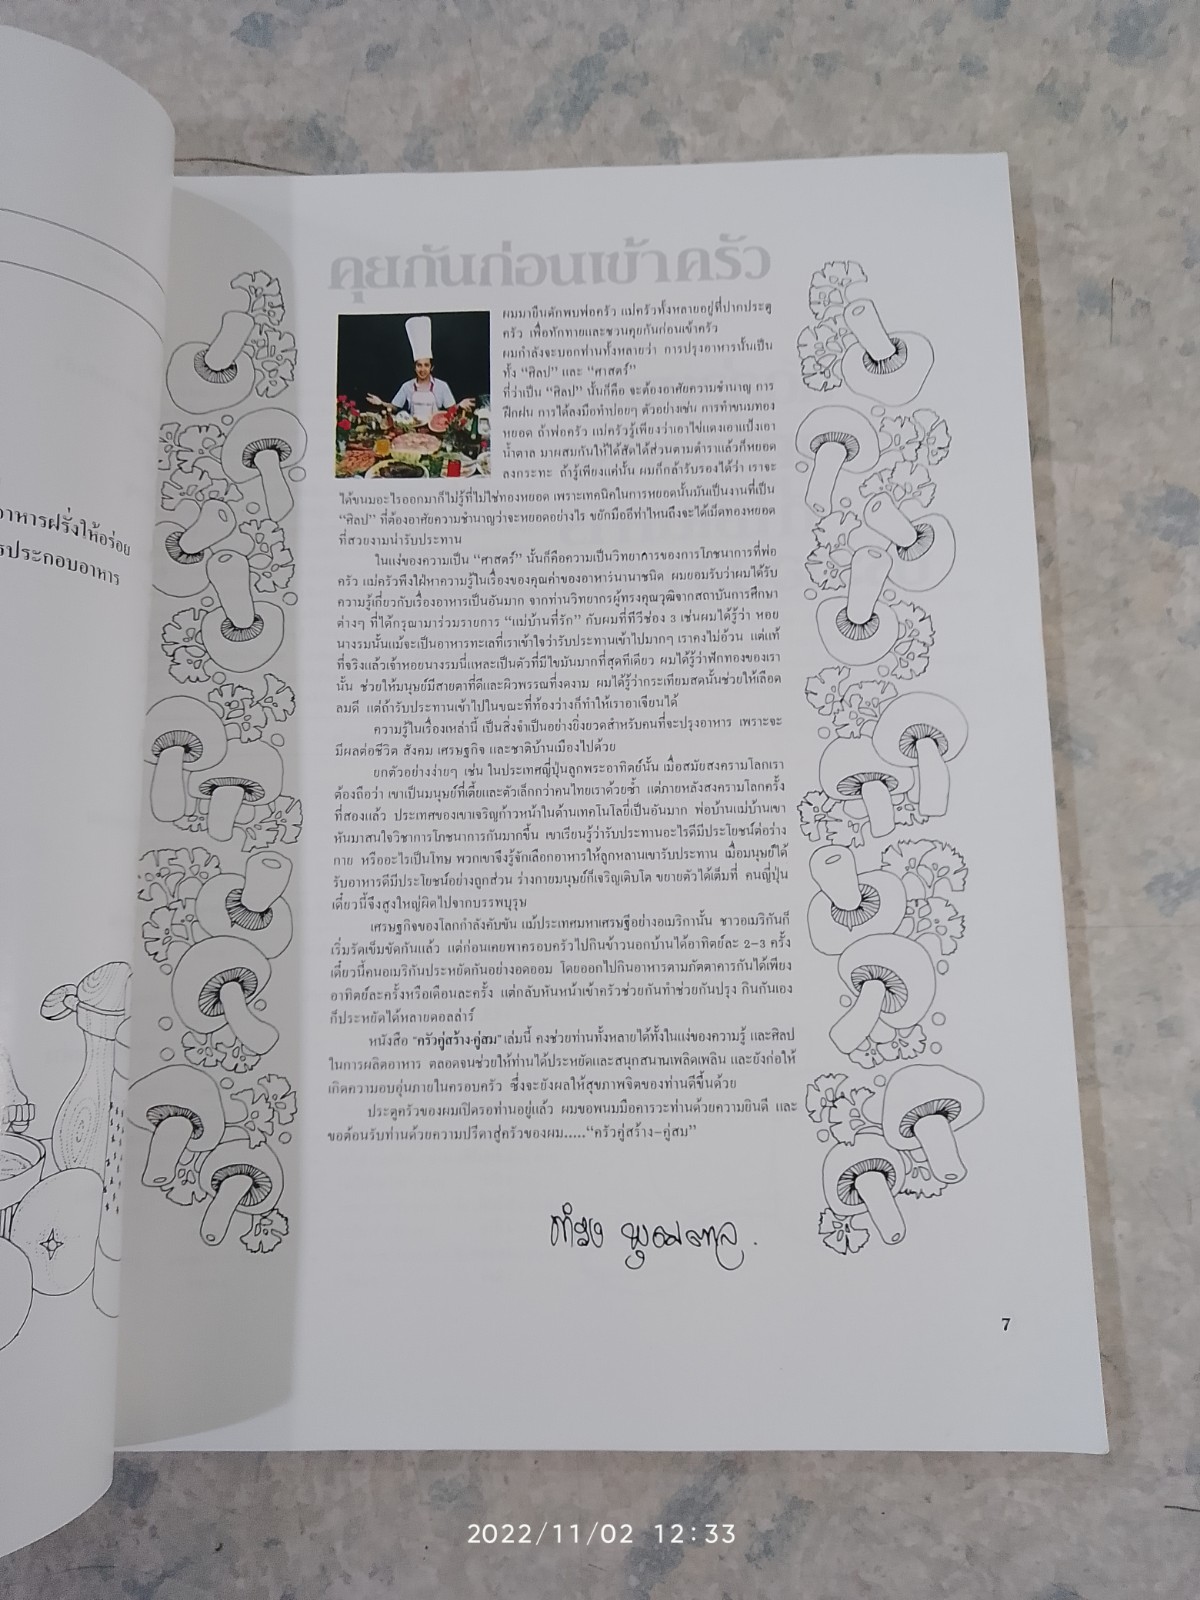 าหารฝรั่งให้อร่อย
รประกอบอาหาร
คุยกันก่อนเข้าครัว
ผมมายืนดักพบพ่อครัว แม่ครัวทั้งหลายอยู่ที่ปากประตู
ครัว เพื่อทักทายและชวนคุยกันก่อนเข้าครัว
ผมกำลังจะบอกท่านทั้งหลายว่า การปรุงอาหารนั้นเป็น
ทั้ง “ศิลป” และ “ศาสตร์”
ที่ว่าเป็น “ศิลป” นั้นก็คือ จะต้องอาศัยความชำนาญ การ
ฝึกฝน การได้ลงมือทำบ่อยๆ ตัวอย่างเช่น การทำขนมทอง
หยอด ถ้าพ่อครัว แม่ครัวรู้เพียงว่าเอาไข่แดงเอาแป้งเอา
น้ำตาล มาผสมกันให้ได้สัดได้ส่วนตามตำราแล้วก็หยอด
ลงกระทะ ถ้ารู้เพียงแค่นั้น ผมก็กล้ารับรองได้ว่า เราจะ
ได้ขนมอะไรออกมาก็ไม่รู้ที่ไม่ใช่ทองหยอด เพราะเทคนิคในการหยอดนั้นมันเป็นงานที่เป็น
“ศิลป” ที่ต้องอาศัยความชำนาญว่าจะหยอดอย่างไร ขยักมืออีท่าไหนถึงจะได้เม็ดทองหยอด
ที่สวยงามน่ารับประทาน
ในแง่ของความเป็น “ศาสตร์” นั้นก็คือความเป็นวิทยาการของการโภชนาการที่พ่อ
ครัว แม่ครัวพึงใฝ่หาความรู้ในเรื่องของคุณค่าของอาหารนานาชนิด ผมยอมรับว่าผมได้รับ
ความรู้เกี่ยวกับเรื่องอาหารเป็นอันมาก จากท่านวิทยากรผู้ทรงคุณวุฒิจากสถาบันการศึกษา
ต่างๆ ที่ได้กรุณามาร่วมรายการ “แม่บ้านที่รัก” กับผมที่ทีวีช่อง 3 เช่นผมได้รู้ว่า หอย
นางรมนั้นแม้จะเป็นอาหารทะเลที่เราเข้าใจว่ารับประทานเข้าไปมากๆ เราคงไม่อ้วน แต่แท้
ที่จริงแล้วเจ้าหอยนางรมนี่แหละเป็นตัวที่มีไขมันมากที่สุดทีเดียว ผมได้รู้ว่าฟักทองของเรา
นั้น ช่วยให้มนุษย์มีสายตาที่ดีและผิวพรรณที่งดงาม ผมได้รู้ว่ากระเทียมสดนั้นช่วยให้เลือด
ลมดี แต่ถ้ารับประทานเข้าไปในขณะที่ท้องว่างก็ทำให้เราอาเจียนได้
ความรู้ในเรื่องเหล่านี้ เป็นสิ่งจำเป็นอย่างยิ่งยวดสำหรับคนที่จะปรุงอาหาร เพราะจะ
มีผลต่อชีวิต สังคม เศรษฐกิจ และชาติบ้านเมืองไปด้วย
ยกตัวอย่างง่ายๆ เช่น ในประเทศญี่ปุ่นลูกพระอาทิตย์นั้น เมื่อสมัยสงครามโลกเรา
ต้องถือว่า เขาเป็นมนุษย์ที่เตี้ยและตัวเล็กกว่าคนไทยเราด้วยซ้ำ แต่ภายหลังสงครามโลกครั้ง
ที่สองแล้ว ประเทศของเขาเจริญก้าวหน้าในด้านเทคโนโลยี่เป็นอันมาก พ่อบ้านแม่บ้านเขา
หันมาสนใจวิชาการโภชนาการกันมากขึ้น เขาเรียนรู้ว่ารับประทานอะไรดีมีประโยชน์ต่อร่าง
กาย หรืออะไรเป็นโทษ พวกเขาจึงรู้จักเลือกอาหารให้ลูกหลานเขารับประทาน เมื่อมนุษย์ได้
รับอาหารดีมีประโยชน์อย่างถูกส่วน ร่างกายมนุษย์ก็เจริญเติบโต ขยายตัวได้เต็มที่ คนญี่ปุ่น
เดี๋ยวนี้จึงสูงใหญ่ผิดไปจากบรรพบุรุษ
เศรษฐกิจของโลกกำลังคับขัน แม้ประเทศมหาเศรษฐีอย่างอเมริกานั้น ชาวอเมริกันก็
เริ่มรัดเข็มขัดกันแล้ว แต่ก่อนเคยพาครอบครัวไปกินข้าวนอกบ้านได้อาทิตย์ละ 2–3 ครั้ง
เดี๋ยวนี้คนอเมริกันประหยัดกันอย่างอดออม โดยออกไปกินอาหารตามภัตตาคารกันได้เพียง
อาทิตย์ละครั้งหรือเดือนละครั้ง แต่กลับหันหน้าเข้าครัวช่วยกันทำช่วยกันปรุง กินกันเอง
ก็ประหยัดได้หลายดอลล่าร์
หนังสือ “ครัวคู่สร้าง-คู่สม” เล่มนี้ คงช่วยท่านทั้งหลายได้ทั้งในแง่ของความรู้ และศิลป
ในการผลิตอาหาร ตลอดจนช่วยให้ท่านได้ประหยัดและสนุกสนานเพลิดเพลิน และยังก่อให้
เกิดความอบอุ่นภายในครอบครัว ซึ่งจะยังผลให้สุขภาพจิตของท่านดีขึ้นด้วย
ประตูครัวของผมเปิดรอท่านอยู่แล้ว ผมขอพนมมือคารวะท่านด้วยความยินดี และ
ขอต้อนรับท่านด้วยความปรีดาสู่ครัวของผม.....“ครัวคู่สร้าง–คู่สม”
7
2022/11/02 12:33